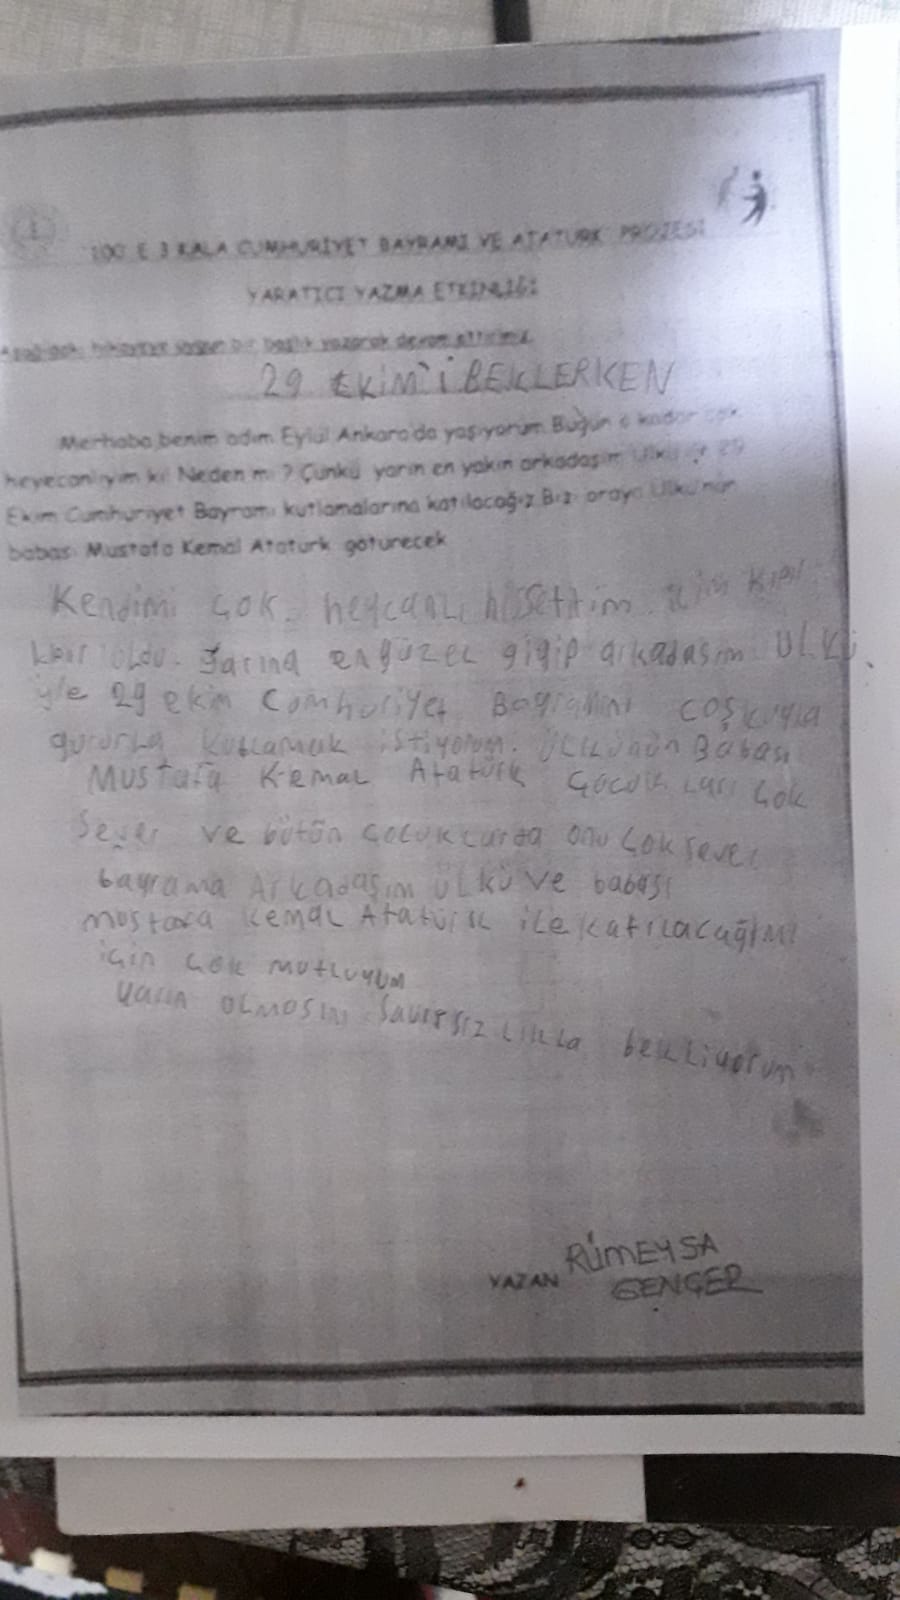 100' E 3 KALA CUMHURİYET BAYRAMI VE ATATÜRK PROJESİ
YARATICI YAZMA ETKİNLİĞİ
Aşağıdaki hikayeye uygun bir başlık yazarak devam ettiriniz.
29 EKİM'İ BEKLERKEN
Merhaba benim adım Eylül Ankara'da yaşıyorum Bugün o kadar çok
heyecanlıyım ki! Neden mi? Çünkü yarın en yakın arkadaşım Ülkü ile 29
Ekim Cumhuriyet Bayramı kutlamalarına katılacağız Bizi oraya Ülkü'nün
babası Mustafa Kemal Atatürk götürecek
Kendimi çok heycanlı hissettim. İçim kıpır
kpır oldu. Yarına en güzel giyip arkadaşım ÜLKÜ
iyle 29 ekim Comhuriyet Bayramını coşkuyla
gururla kutlamak istiyorum. ÜLkünün Babası
Mustafa Kemal Atatürk Çocukları çok
Sever ve bütün çocuklarda onu çok sever
bayrama Arkadaşım ÜLKÜ ve babası
mustafa Kemal Atatürk ile katılacağımı
için çok mutluyum
yarın olmasını sabırsızlıkla bekliyorum
YAZAN RÜMEYSA
GENÇER